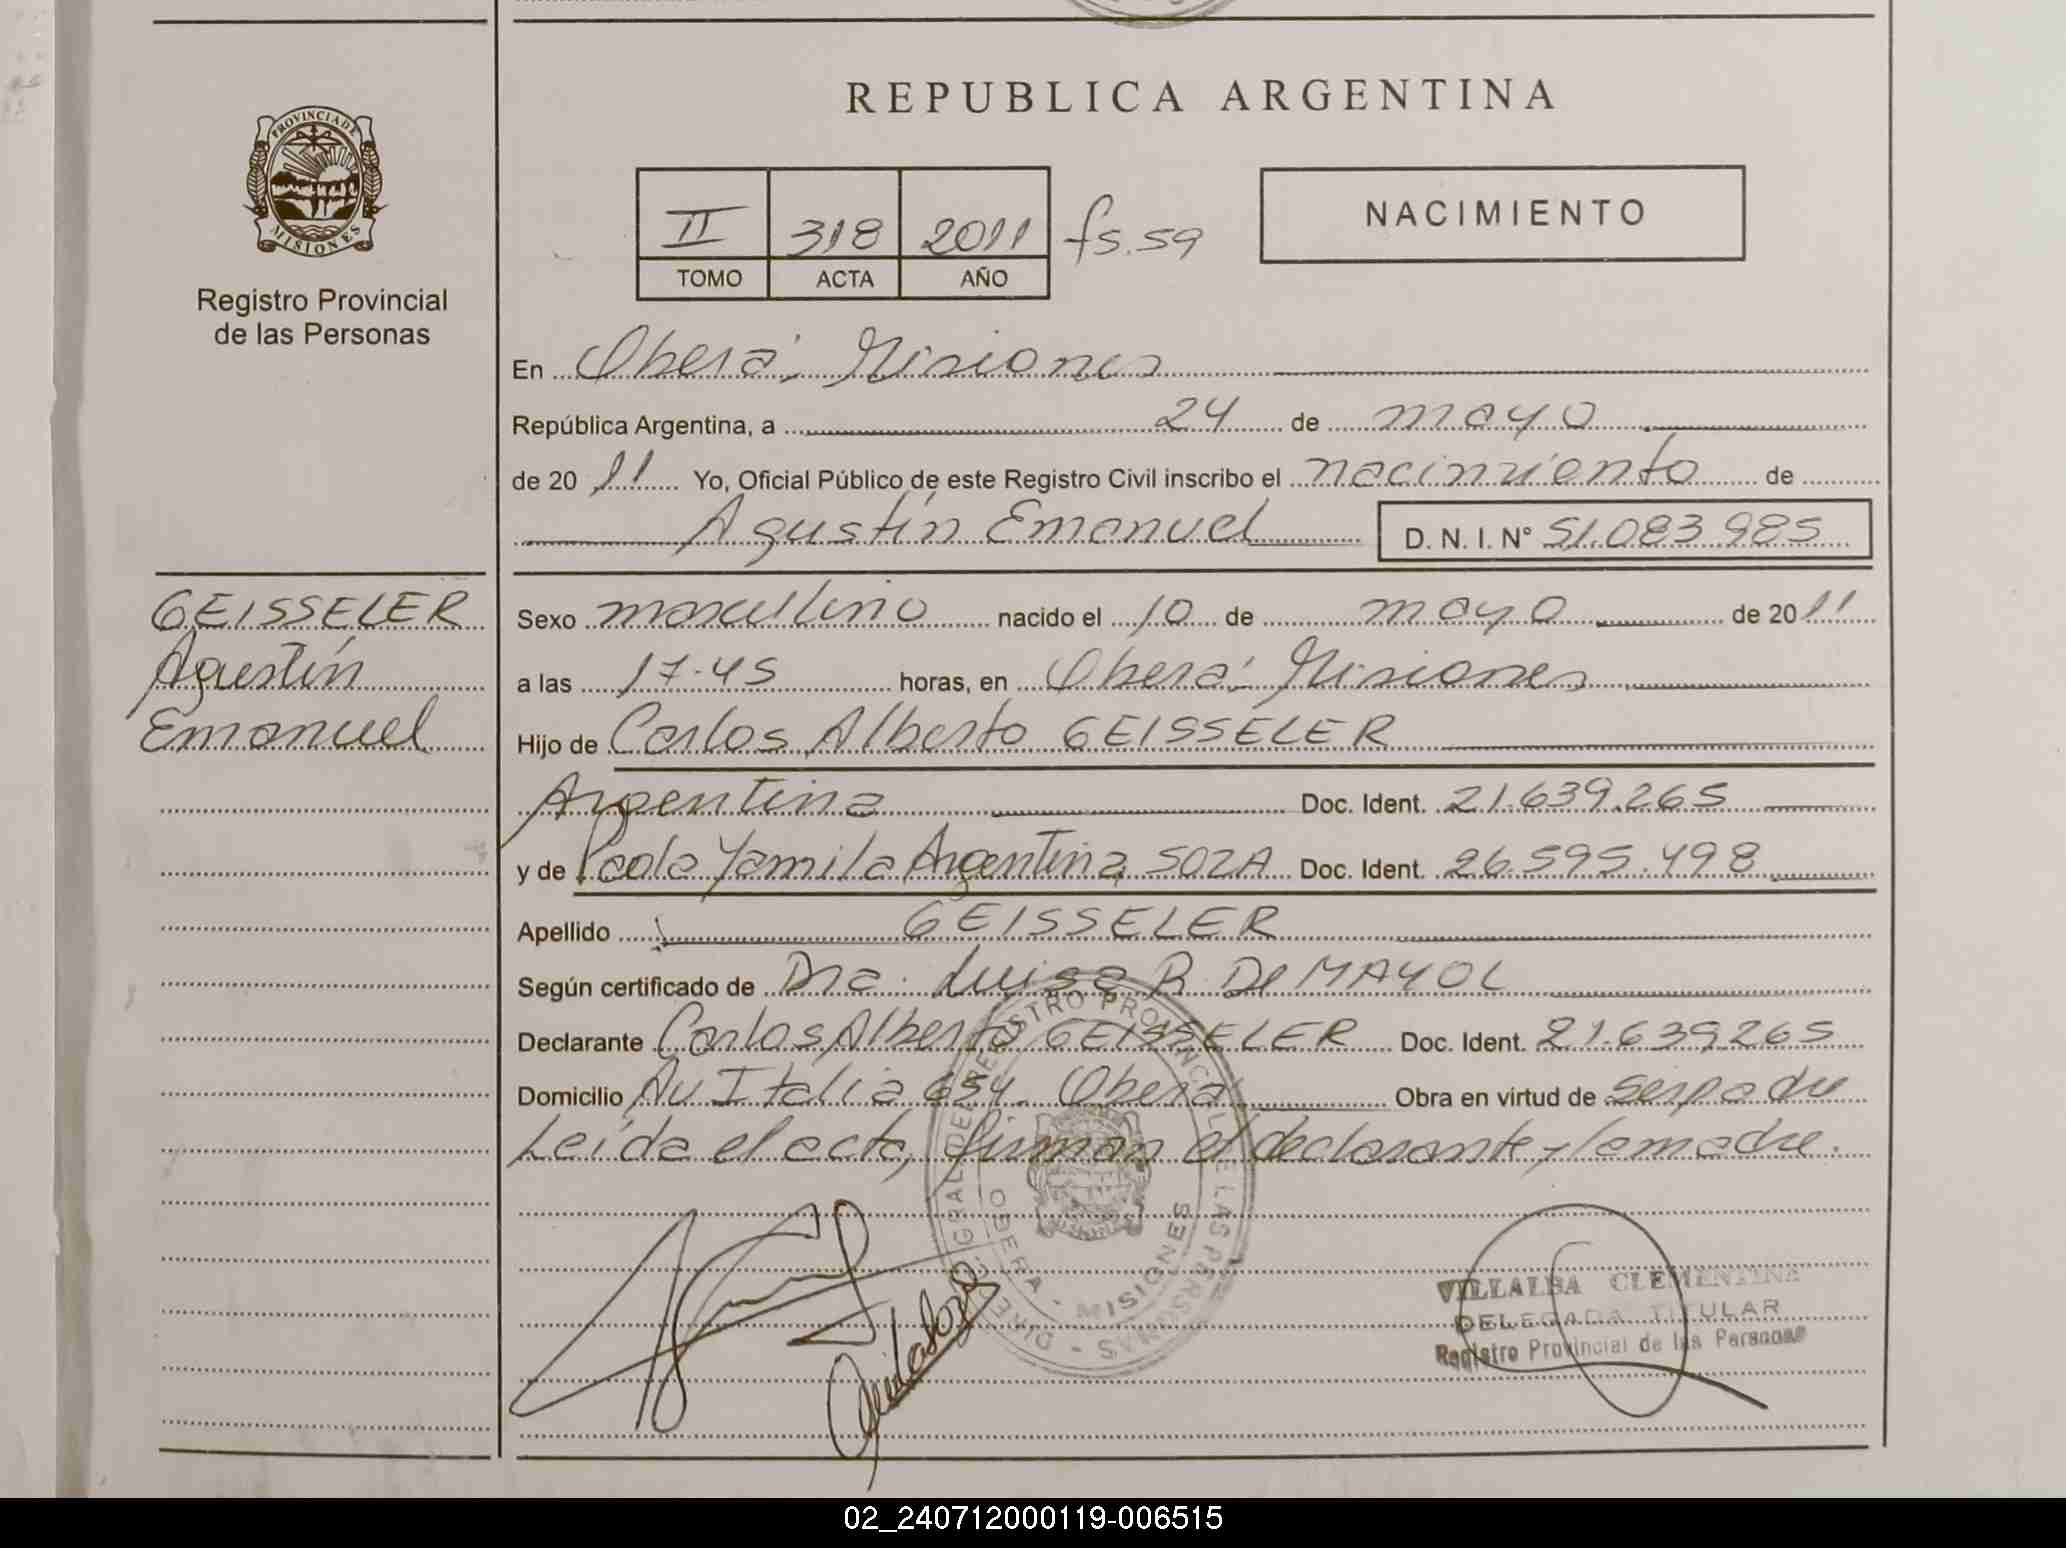 REPUBLICA ARGENTINA
PROVINCIA DE
MISIONES
Registro Provincial
de las Personas
II 318 2011 fs. 59
TOMO ACTA AÑO
NACIMIENTO
En Oberá, Misiones
República Argentina, a 24 de mayo
de 20 11 Yo, Oficial Público de este Registro Civil inscribo el nacimiento de
Agustín Emanuel D. N. I. Nº 51.083.985
GEISSELER
Agustín
Emanuel
Sexo masculino nacido el 10 de mayo de 20 11
a las 17.45 horas, en Oberá, Misiones
Hijo de Carlos Alberto GEISSELER
Argentina Doc. Ident. 21.639.265
y de Paola Yamila Argentina SOZA Doc. Ident. 26.595.498
Apellido GEISSELER
Según certificado de Dra. Luisa R. De MAYOL
Declarante Carlos Alberto GEISSELER Doc. Ident. 21.639265
Domicilio Av Italia 654. Oberá Obra en virtud de ser padre
Leída el acta, firman el declarante y la madre.
DIREC. GRAL DEL REGISTRO PROVINCIAL DE LAS PERSONAS
OBERA - MISIONES
VILLALBA CLEMENTINA
DELEGADA TITULAR
Registro Provincial de las Personas
02_240712000119-006515